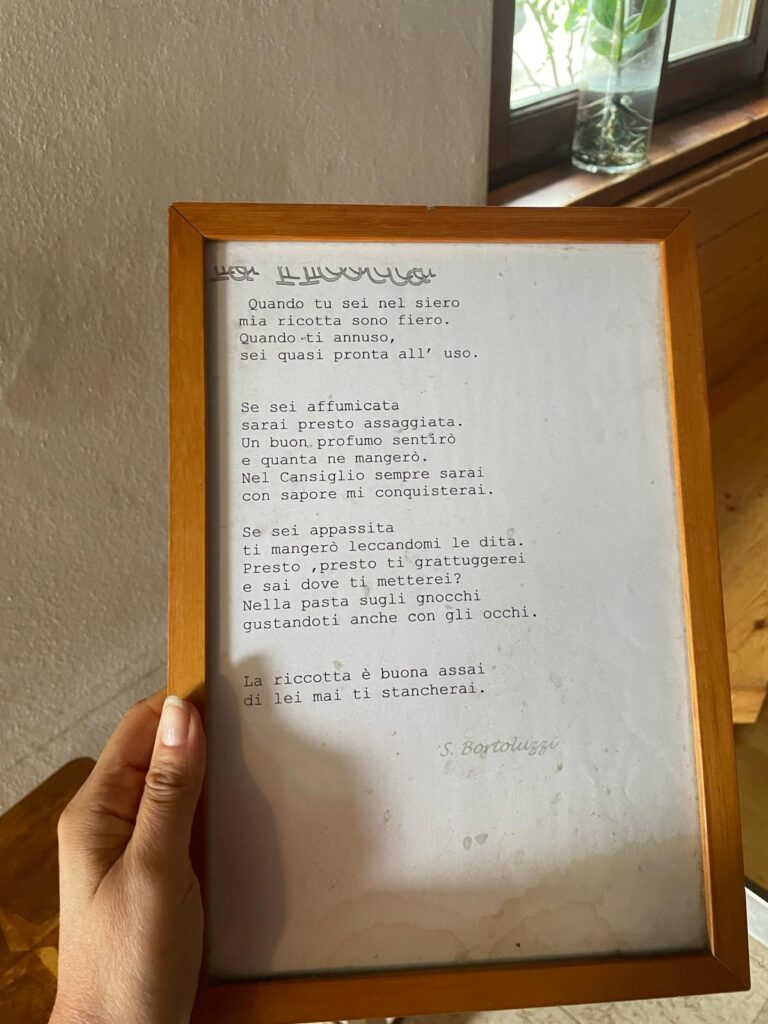 Quando tu sei nel siero
mia ricotta sono fiero.
Quando ti annuso,
sei quasi pronta all' uso.
Se sei affumicata
sarai presto assaggiata.
Un buon profumo sentirò
e quanta ne mangerò.
Nel Cansiglio sempre sarai
con sapore mi conquisterai.
Se sei appassita
ti mangerò leccandomi le dita.
Presto ,presto ti grattuggerei
e sai dove ti metterei?
Nella pasta sugli gnocchi
gustandoti anche con gli occhi.
La riccotta è buona assai
di lei mai ti stancherai.
S. Bortoluzzi